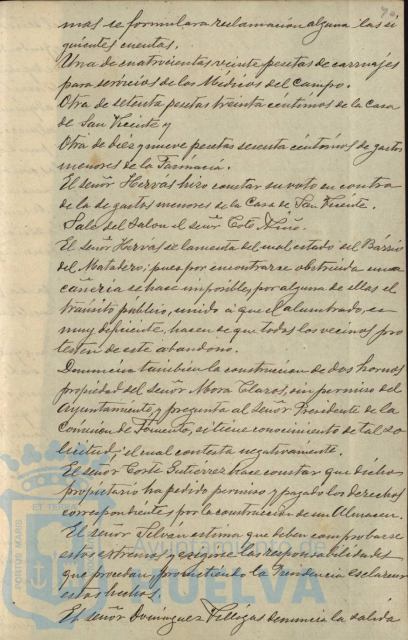 mas se formulara reclamación alguna las si
guientes cuentas.
Una de cuatrocientas veinte pesetas de carruajes
para servicios de los Médicos del Campo.
Otra de setenta pesetas treinta céntimos de la Casa
de San Vicente y
Otra de diez y nueve pesetas sesenta céntimos de gastos
menores de la Farmacia.
El señor Hervas hizo constar su voto en contra
de la de gastos menores de la Casa de San Vicente.
Sale del Salon el señor Coto
El señor Hervas se lamenta del mal estado del Barrio
del Matadero; pues por encontrarse obstruida una
cañeria se hace imposible, por alguna de ellas el
tránsito público, unido á que el alumbrado, es
muy deficiente, hacen se que todos los vecinos pro
testen de este abandono.
Denuncia tambien la construccion de dos hornos
propiedad del señor Mora Claros, sin permiso del
Ayuntamiento, y pregunta al señor Presidente de la
Comisión de Fomento, si tiene conocimiento de tal so
licitud; el cual contesta negativamente.
El señor Corte Gutierrez hace constar que dicho
propietario ha pedido permiso y pagado los derechos
correspondientes por la construccion de un Almacen.
El señor Selván estima que deben comprobarse
estos extremos y exigirse las responsabilidades
que procedan, prometiendo la Presidencia esclarecer
estos hechos.
El señor Dominguez Villegas denuncia la salida
PORTUS MARIS ET TERRAE
Ayuntamiento de
HUELVA